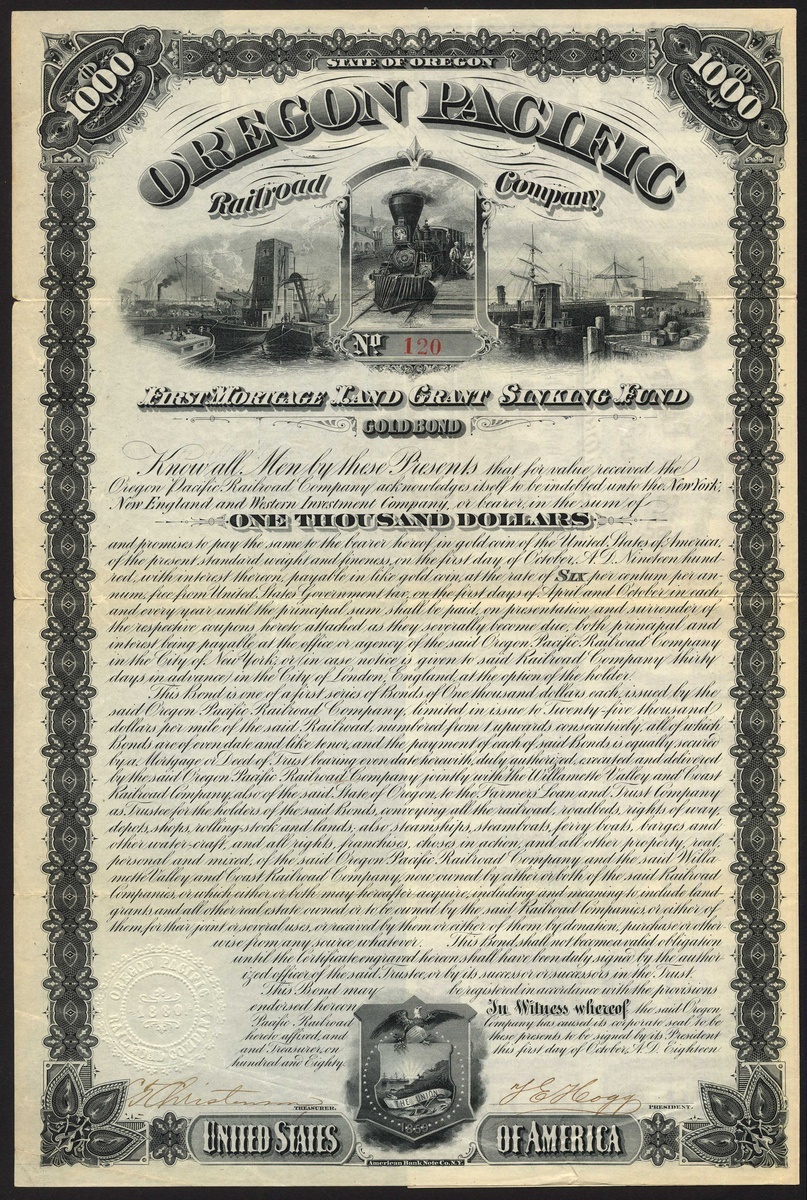 STATE OF OREGON
1000
1000
OREGON PACIFIC
Railroad Company,
No. 120
FIRST MORTGAGE LAND GRANT SINKING FUND
GOLD BOND
Know all Men by these Presents that for value received the
Oregon Pacific Railroad Company acknowledges itself to be indebted unto the New York,
New England and Western Investment Company, or bearer, in the sum of
ONE THOUSAND DOLLARS
and promises to pay the same to the bearer hereof in gold coin of the United States of America,
of the present standard weight and fineness, on the first day of October, A.D. Nineteen hund
red, with interest thereon, payable in like gold coin, at the rate of SIX per centum per an-
num, free from United States Government tax, on the first days of April and October, in each
and every year until the principal sum shall be paid, on presentation and surrender of
the respective coupons hereto attached as they severally become due, both principal and
interest being payable at the office or agency of the said Oregon Pacific Railroad Company
in the City of New York, or (in case notice is given to said Railroad Company thirty
days in advance) in the City of London, England, at the option of the holder.
This Bond is one of a first series of Bonds of One thousand dollars each, issued by the
said Oregon Pacific Railroad Company, limited in issue to Twenty-five thousand
dollars per mile of the said Railroad, numbered from 1 upwards consecutively, all of which
Bonds are of even date and like tenor, and the payment of each of said Bonds is equally secured
by a Mortgage or Deed of Trust bearing even date herewith, duly authorized, executed and delivered
by the said Oregon Pacific Railroad Company jointly with the Willamette Valley and Coast
Railroad Company, also of the said State of Oregon, to the Farmers Loan and Trust Company
as Trustee for the holders of the said Bonds, conveying all the railroad, roadbeds, rights of way,
depots, shops, rolling-stock and lands; also, steamships, steamboats, ferry boats, barges and
other water-craft, and all rights, franchises, choses in action, and all other property, real,
personal and mixed, of the said Oregon Pacific Railroad Company and the said Willa
mette Valley and Coast Railroad Company, now owned by either or both of the said Railroad
Companies, or which either or both may hereafter acquire, including and meaning to include land
grants and all other real estate owned or to be owned by the said Railroad Companies or either of
them, for their joint or several uses, or received by them or either of them by donation, purchase or other-
wise from any source whatever. This Bond shall not become a valid obligation
until the Certificate engraved hereon shall have been duly signed by the author
ized officer of the said Trustee, or by its successor or successors in the Trust.
This Bond may be registered in accordance with the provisions
endorsed hereon. In Witness whereof the said Oregon
Pacific Railroad Company has caused its corporate seal to be
hereto affixed, and these presents to be signed by its President
and Treasurer, on this first day of October, A.D. Eighteen
hundred and Eighty.
OREGON PACIFIC
1880
TREASURER.
T E Hogg
PRESIDENT.
THE UNION
1859
UNITED STATES OF AMERICA
American Bank Note Co. N.Y.